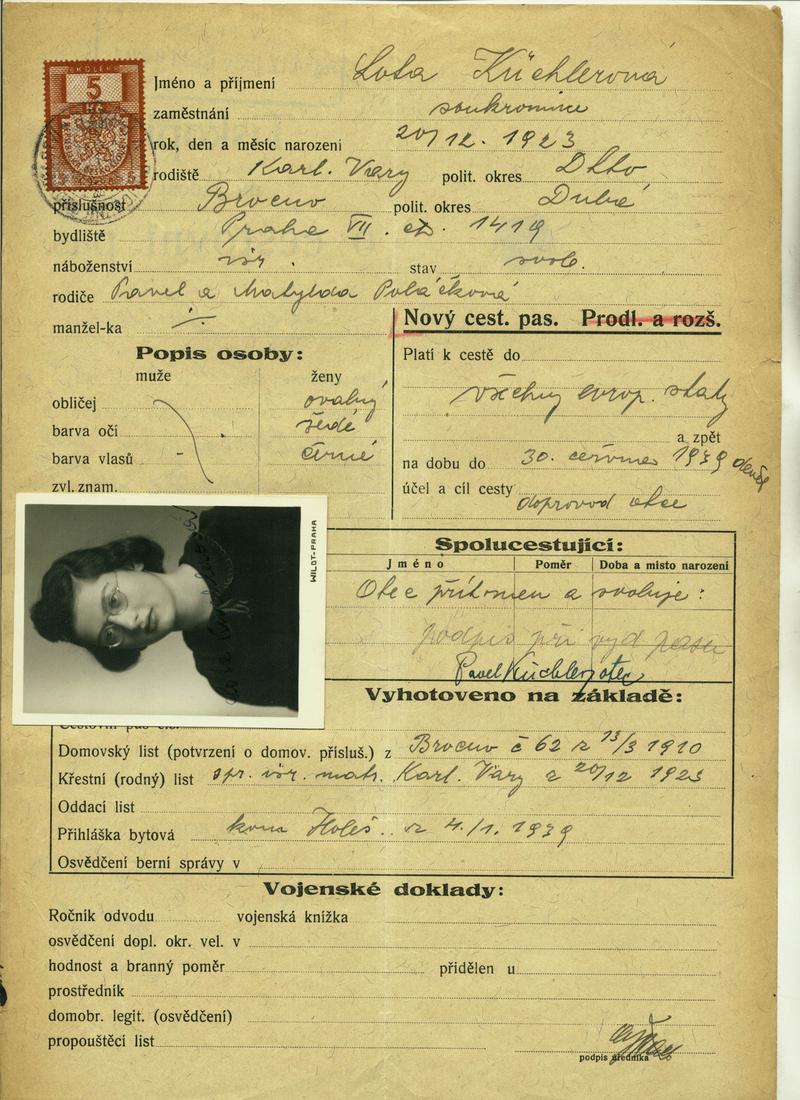 KOLEK
5
Jméno a příjmení Lota Küchlerová
zaměstnání soukromnice
rok, den a měsíc narozeni 20/12. 1923
rodiště Karl. Vary polit. okres Dtto
příslušnost Brocno polit. okres Dubá
bydliště Praha VII. čp. 1419
náboženství isr. stav svob.
rodiče Pavel a Matylda Poláčková
manžel-ka ./.
Nový cest. pas. Prodl. a rozš.
Popis osoby:
muže ženy
obličej ovalný
barva očí šedé
barva vlasů - černé
zvl. znam.
Platí k cestě do
všechny evrop. státy
a zpět
na dobu do 30. června 1939
účel a cíl cesty doprovod otce
WILDT-PRAHA
Spolucestující:
Jméno Poměr Doba a místo narození
Otec přítomen a svoluje:
podpis při vyd pasu
Pavel Küchler, otec
Vyhotoveno na základě:
Domovský list (potvrzení o domov. přísluš.) z Brocno č 62 z 13/3 1910
Křestní (rodný) list isr. matr. Karl. Vary z 20/12 1923
Oddací list
Přihláška bytová kom Holeš. z 4./1. 1939
Osvědčení berní správy v
Vojenské doklady:
Ročník odvodu vojenská knížka
osvědčení dopl. okr. vel. v
hodnost a branný poměr přidělen u
prostředník
domobr. legit. (osvědčení)
propouštěcí list
podpis úředníka